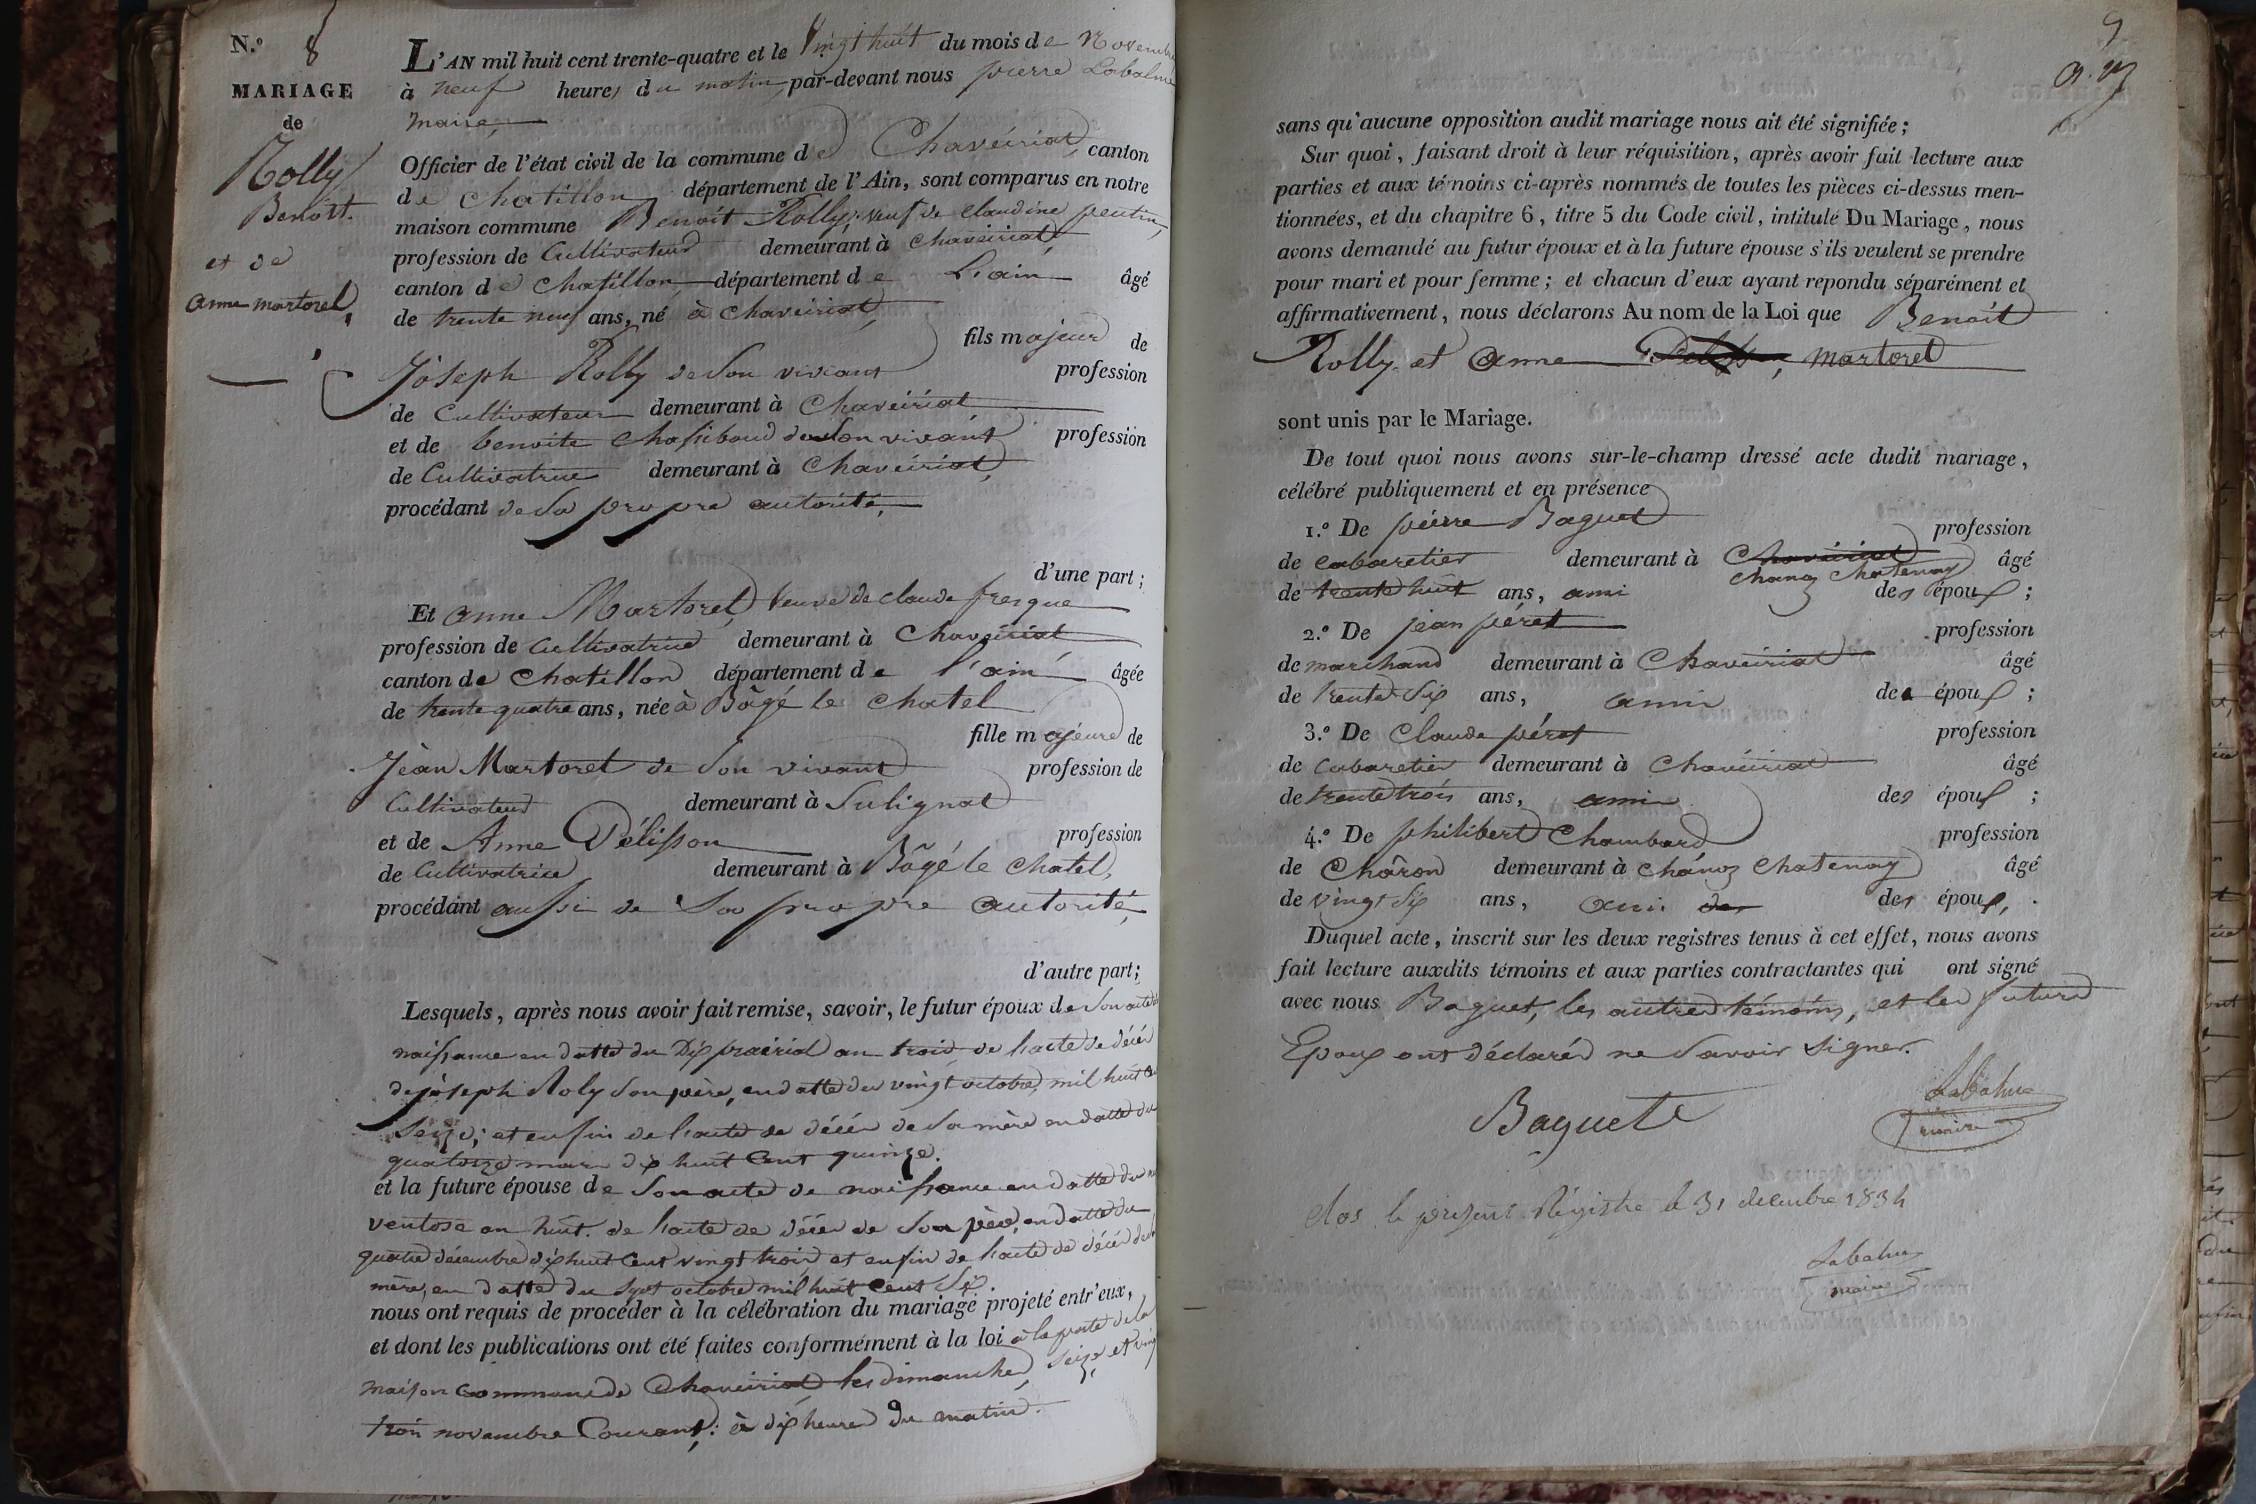 N.o 8
MARIAGE
de
Rolly
Benoît.
et de
anne martoret,
L'AN mil huit cent trente-quatre et le vingt huit du mois de Novembre
à neuf heures du matin, par-devant nous pierre Labalme
maire,
Officier de l'état civil de la commune de Chaveiriat, canton
de Chatillon département de l'Ain, sont comparus en notre
maison commune Benoit Rolly, veuf de Claudine peutin,
profession de Cultivateur demeurant à Chaveiriat,
canton de Chatillon, département de L'ain âgé
de trente neuf ans, né à Chaveiriat,
fils majeur de
Joseph Rolly de son vivant profession
de Cultivateur demeurant à Chavéiriat
et de benoite Chassiboud de son vivant profession
de Cultivatrice demeurant à Chavéiriat,
procédant de sa propre autorité,
d'une part ;
Et anne Martoret, veuve de claude fresque
profession de Cultivatrice demeurant à Chaveiriat
canton de Chatillon département de l'ain âgée
de trente quatre ans, née à Bâgé le Chatel
fille majeure de
Jéan Martoret de son vivant profession de
Cultivateur demeurant à Sulignat
et de Anne Pélisson profession
de Cultivatrice demeurant à Bâgé le Chatel,
procédant aussi de sa propre autorité,
d'autre part ;
Lesquels, après nous avoir fait remise, savoir, le futur époux de son acte de
naissance en datte du Dix prairial an trois de l'acte de décés
de jòseph Roly son père, en datte du vingt octobre, mil huit cent
Seize; et enfin de l'acte de décés de sa mère en datte du
quatorze mars dix huit Cent quinze.
et la future épouse de son acte de naissance en datte du
ventose an huit. de l'acte de décés de son père, en datte du
quatre décembre dix huit Cent vingt trois et enfin de l'acte de décés de sa
mère, en datte du sept octobre mil huit Cent Six.
nous ont requis de procéder à la célébration du mariage projeté entr'eux,
et dont les publications ont été faites conformément à la loi à la porte de la
maison Commune de Chaveiriat, les dimanches, seize et vingt
trois novembre Courant; à dix heures du matin.
9
sans qu'aucune opposition audit mariage nous ait été signifiée ;
Sur quoi, faisant droit à leur réquisition, après avoir fait lecture aux
parties et aux témoins ci-après nommés de toutes les pièces ci-dessus men-
tionnées, et du chapitre 6, titre 5 du Code civil, intitulé Du Mariage, nous
avons demandé au futur époux et à la future épouse s'ils veulent se prendre
pour mari et pour femme ; et chacun d'eux ayant repondu séparément et
affirmativement, nous déclarons Au nom de la Loi que Benoît
Rolly et anne martoret
sont unis par le Mariage.
De tout quoi nous avons sur-le-champ dressé acte dudit mariage,
célébré publiquement et en présence
1.o De péirre Baguet profession
de cabaretier demeurant à Chaveiriat âgé
chanoz Chatenay
de trente huit ans, ami des époux ;
2.o De jean péret profession
de marchand demeurant à Chaveiriat âgé
de trente Six ans, ami des époux ;
3.o De Claude péret profession
de Cabaretier demeurant à Chavéiriat âgé
de trente trois ans, ami des époux ;
4.o De philibert Chambard profession
de Chàron demeurant à chánoz Chatenay âgé
de vingt Six ans, ami des des époux,
Duquel acte, inscrit sur les deux registres tenus à cet effet, nous avons
fait lecture auxdits témoins et aux parties contractantes qui ont signé
avec nous Baguet, les autres témoins, et les futurs
Epoux ont déclarés ne savoir signer.
Baguet Labalme
maire
clos le présent Régistre le 31 decembre 1834
Labalme
maire